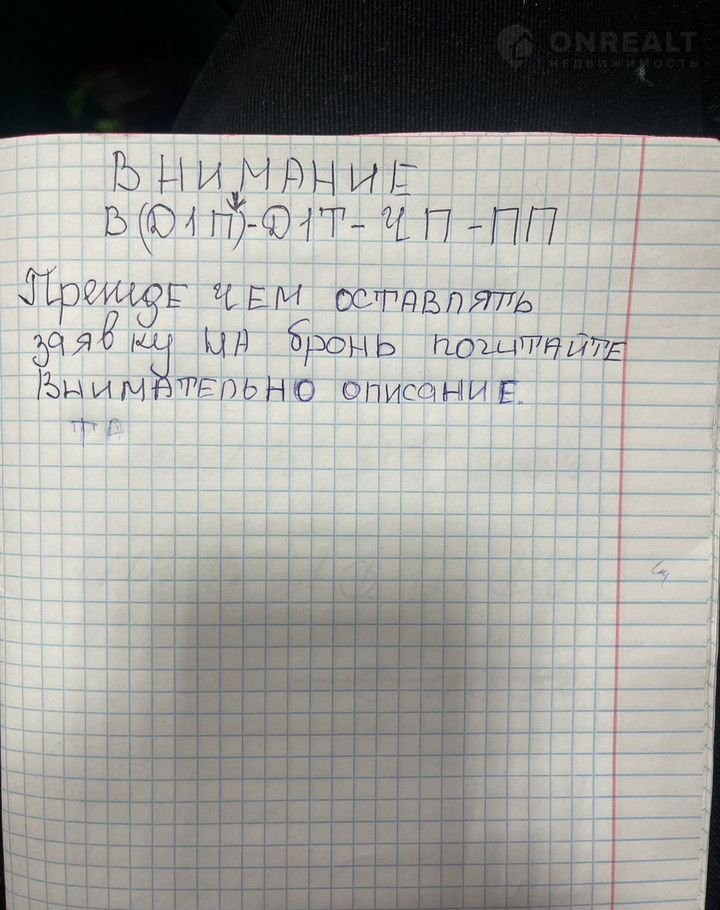 ONREALT
НЕДВИЖИМОСТЬ
ВНИМАНИЕ
В(D1П)-D1Т-ЧП-ПП
Прежде чем оставлять
заявку на бронь почитайте
внимательно описание.